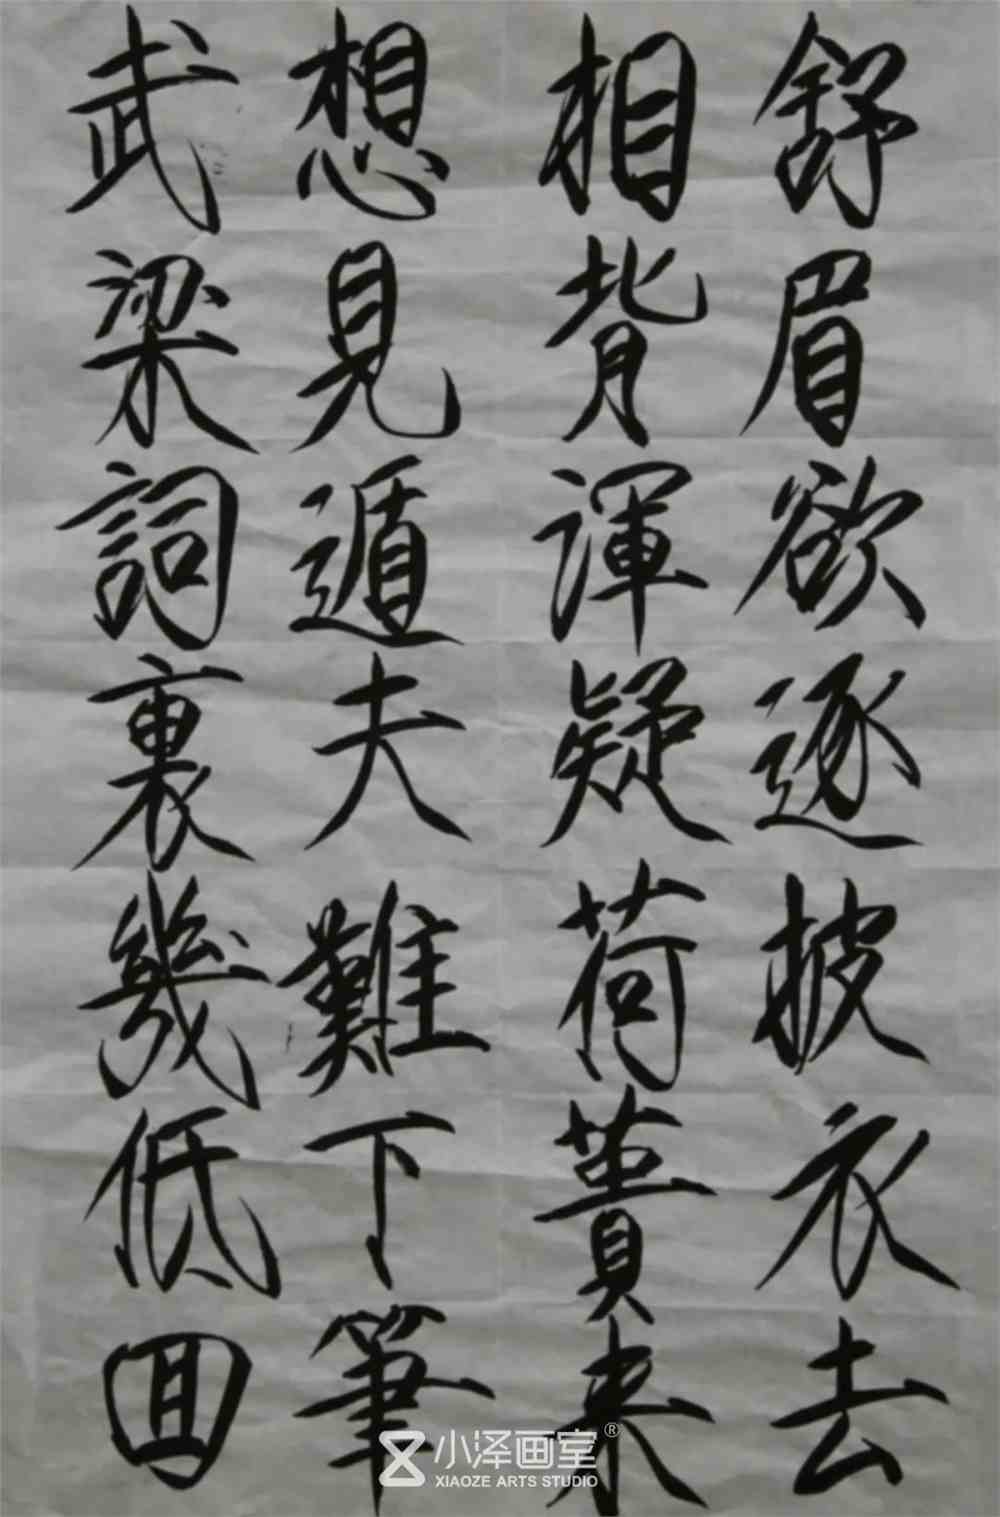 舒眉欲逐披衣去
相背渾疑荷蕢来
想見遁夫難下筆
武梁詞裏幾低回
小泽画室®
XIAOZE ARTS STUDIO